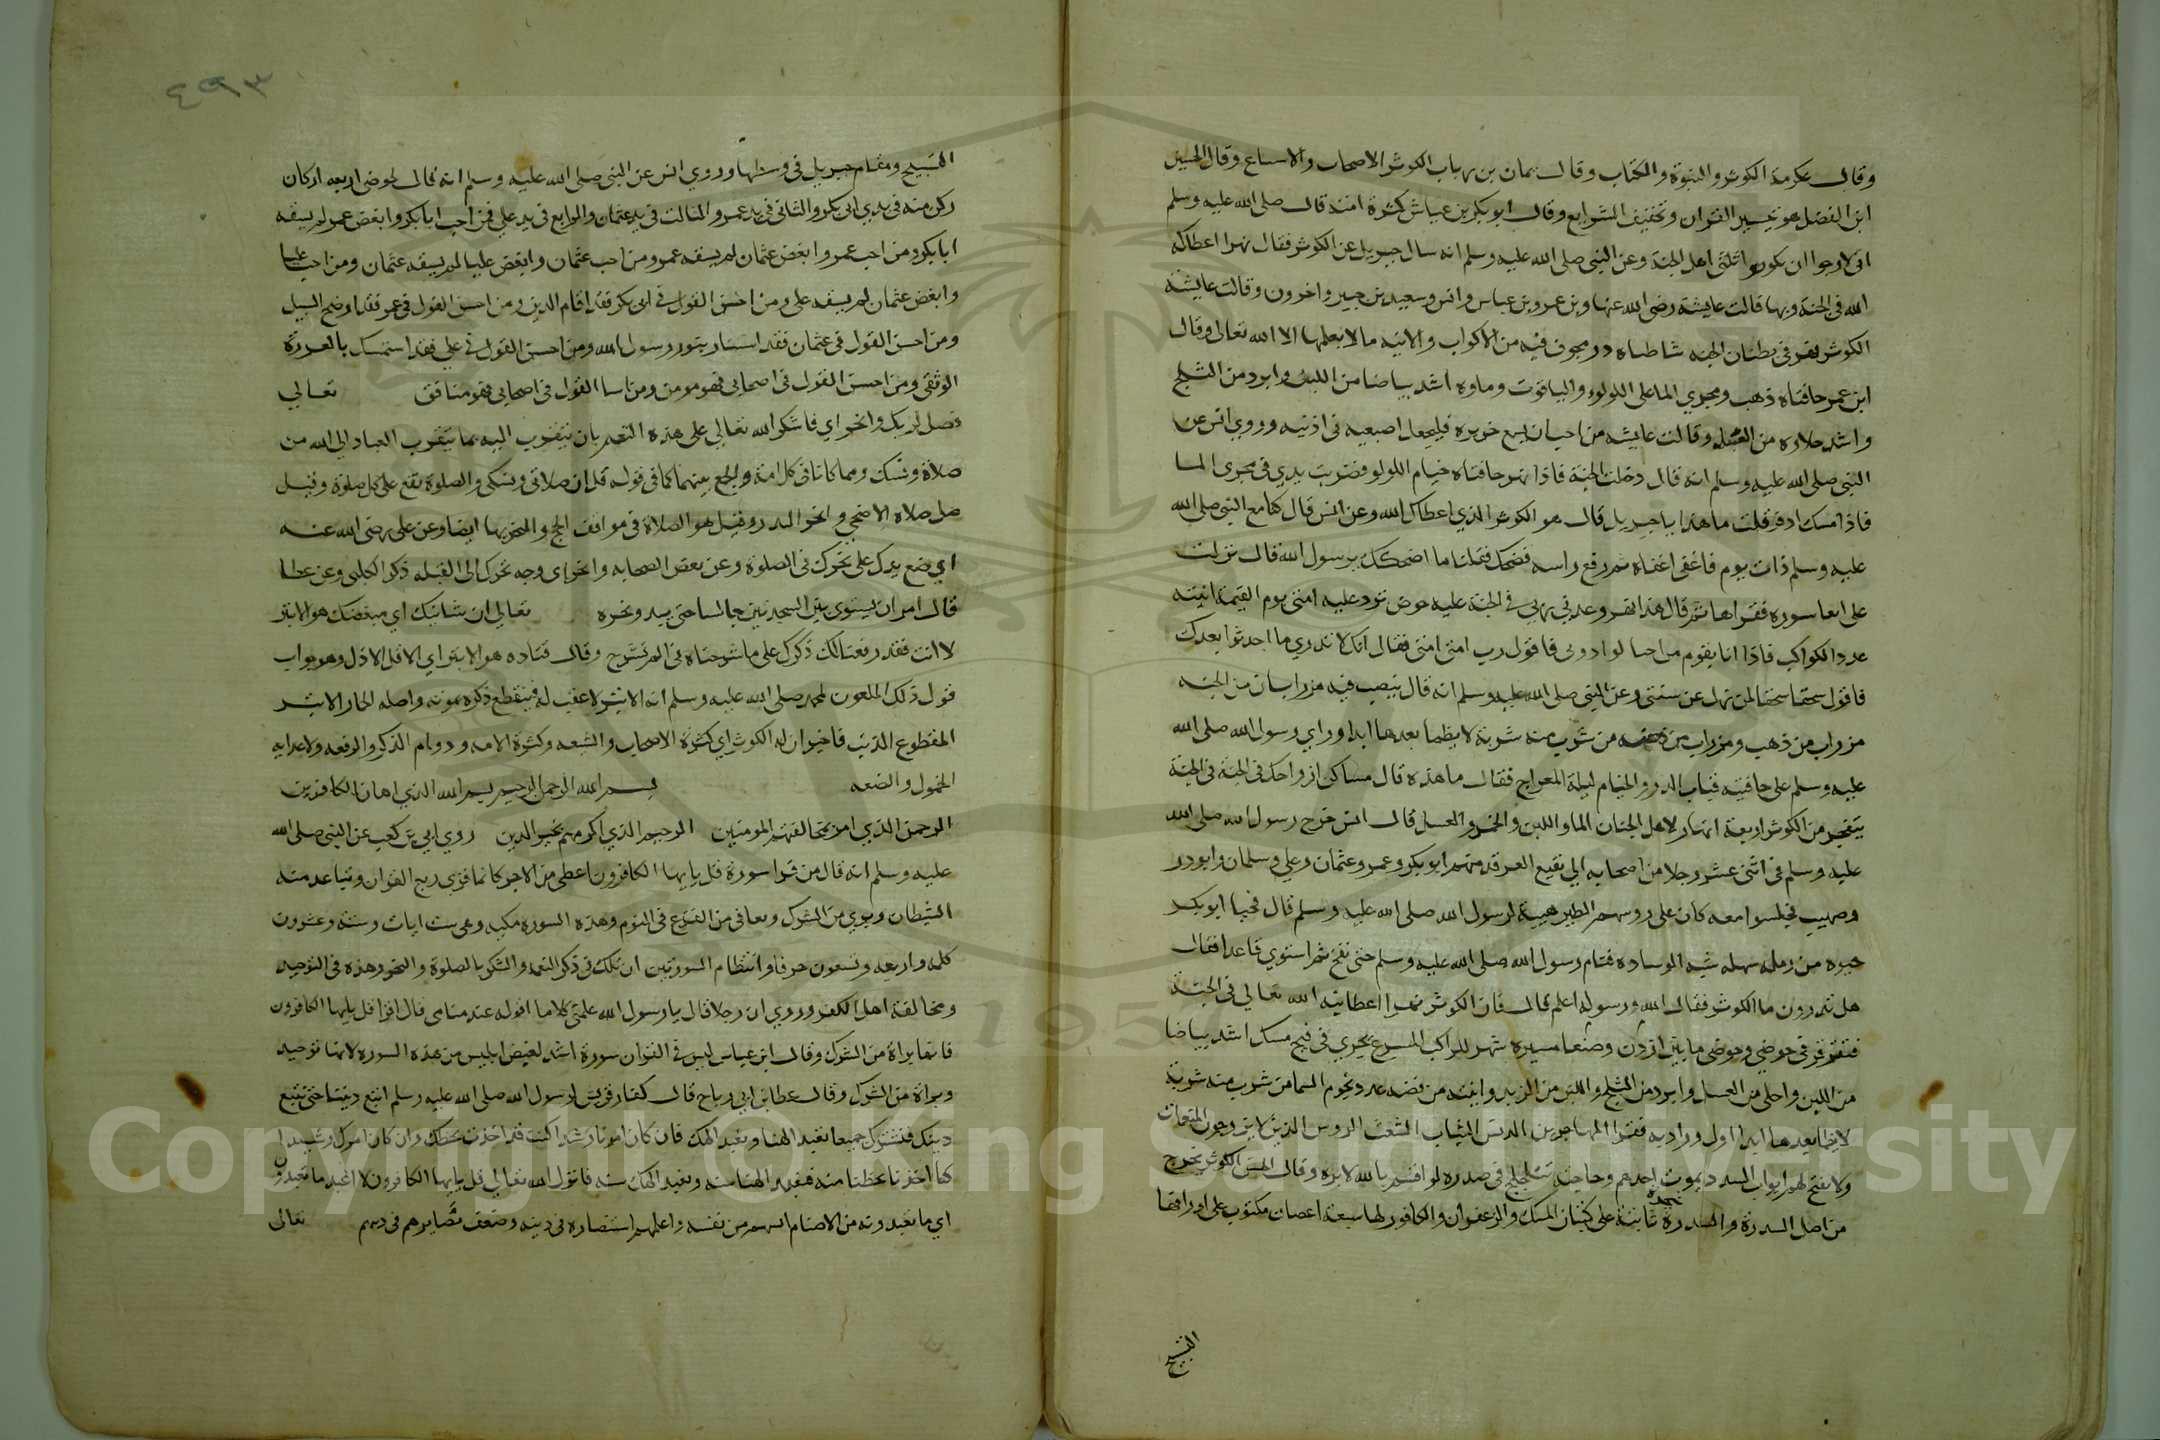 وقال عكرمة الكوثر والنبوة والكتاب وقال يمان بن رباب الكوثر الاصحاب والاسباع وقال الحسين
ابن الفضل هو تيسير القران وتخفيف الشرايع وقال ابو بكر بن عياش كثرة امته قال صلى الله عليه وسلم
اني لارجوا ان يكونوا ثلثي اهل الجنة وعن النبي صلى الله عليه وسلم انه سال جبريل عن الكوثر فقال نهرا اعطاكه
الله في الجنة وبها قالت عايشة رضي الله عنها وبن عمر وبن عباس وانس وسعيد بن جبير واخرون وقالت عايشة
الكوثر نهر في بطنان الجنة شاطئاه در مجوف فيه من الاكواب والانيه ما لا يعلمها الا الله تعالى وقال
ابن عمر حافتاه ذهب ومجري الما على اللولو والياقوت وماوه اشد بياضا من اللبن وابرد من الثلج
واشد حلاوه من العسل وقالت عايشه من احب ان يسمع خريره فليجعل اصبعيه في اذنيه وروي انس عن
النبي صلى الله عليه وسلم انه قال دخلت الجنة فاذا نهر حافتاه خيام اللولو فضربت بيدي في مجرى الما
فاذا مسك اذفر قلت ما هذا يا جبريل قال هو الكوثر الذي اعطاك الله وعن انس قال كنا مع النبي صلى الله
عليه وسلم ذات يوم فاغفى اغفاه ثم رفع راسه فضحك فقلنا ما اضحكك يرسول الله قال نزلت
على انفا سوره فقراها ثم قال هذا نهر وعدني ربي في الجنة عليه حوض ترد عليه امتي يوم القيمة انيته
عدد الكواكب فاذا انا بقوم من احبا لو ادوني فاقول رب امتي امتي فقال انك لا تدري ما احدثوا بعدك
فاقول سحقا سحقا لمن بدل عن سنتي وعن النبي صلى الله عليه وسلم انه قال ينصب فيه مزرابان من الجنه
مزراب من ذهب ومزراب من فضه من شرب منه شربة لا يظما بعدها ابدا وراي رسول الله صلى الله
عليه وسلم على حافتيه قباب الدر والخيام ليلة المعراج فقال ما هذه قال مساكن ازواجك في الجنة في الجنة
يتفجر من الكوثر اربعة انهار لاهل الجنان الما واللبن والخمر والعسل قال انس خرج رسول الله صلى الله
عليه وسلم في اثني عشر رجلا من اصحابه الي بقيع الغرقد منهم ابو بكر وعمر وعثمان وعلي وسلمان وابو ذر
وصهيب فجلسوا معه كان على روسهم الطير هيبة لرسول الله صلى الله عليه وسلم قال فجيا ابو بكر
حبوه من رمله سهله شبه الوساده فنام رسول الله صلى الله عليه وسلم حتى نفخ ثم استوي قاعدا فقال
هل تدرون ما الكوثر فقال الله ورسوله اعلم قال فان الكوثر نهرا اعطانيه الله تعالي في الجنة
فتفرق في حوضي وحوضي ما بين اردن وصنعا مسيرة شهر للراكب المسرع يجري في فيح مسك اشد بياضا
من اللبن واحلى من العسل وابرد من الثلج والين من الزبد وانيته من فضه عدد نجوم السما من شرب منه شربة
لا يظما بعدها ابدا اول وراديه فقرا المهاجرين الدنس الثياب الشعث الروس الذين لا يتزوجون المتنعمات
ولا يفتح لهم ابواب السدد يموت احدهم وحاجته تتلجلج في صدره لو اقسم بالله لابره وقال الحسن الكوثر يخرج
من اصل السدرة والسدرة شجرة ثابتة على كثبان المسك والزعفران والكافور لها سبعة اغصان مكتوب على اوراقها
التسبيح
٤٩٣
التسبيح ومقام جبريل في وسطها وروي انس عن النبي صلى الله عليه وسلم انه قال لحوضي اربعه اركان
ركن منه في يدي ابي بكر والثاني في يد عمر والثالث في يد عثمان والرابع في يد علي فمن احب ابا بكر وابغض عمر لم يسقه
ابا بكر ومن احب عمر وابغض عثمان لم يسقه عمر ومن احب عثمان وابغض عليا لم يسقه عثمان ومن احب عليا
وابغض عثمان لم يسقه علي ومن احسن القول في ابي بكر فقد اقام الدين ومن احسن القول في عمر فقد اوضح السبيل
ومن احسن القول في عثمان فقد استنار بنور رسول الله ومن احسن القول في علي فقد استمسك بالعروة
الوثقى ومن احسن القول في اصحابي فهو مومن ومن اسا القول في اصحابي فهو منافق تعالي
فصل لربك وانحر اي فاشكر الله تعالي على هذه النعم بان تتقرب اليه بما يتقرب العباد الى الله من
صلاة ونسك ومما كانا في كل امة والجمع بينهما كما في قوله قل ان صلاتي ونسكي والصلوة تقع على كل صلوة وقيل
صل صلاه الاضحي وانحر البدن وقيل هو الصلاة في مواقف الحج والنحر بها ايضا وعن علي رضي الله عنه
اي ضع يدك على نحرك في الصلوة وعن بعض الصحابه وانحر اي وجه نحرك الى القبله ذكره الكلبي وعن عطا
قال امر ان يستوي بين السجدتين جالسا حتى يبدو نحره تعالي ان شانيك اي مبغضك هو الابتر
لا انت فقد رفعنا لك ذكرك على ما شرحناه في الم نشرح وقال قتاده هو الابتر اي الاقل الاذل وهو جواب
قول ذلك الملعون لمحمد صلى الله عليه وسلم انه الابتر لا عقب له فينقطع ذكره بموته واصله الحمار الابتر
المقطوع الذنب فاخبر ان له الكوثر اي كثرة الاصحاب والشيعه وكثرة الامه ودوام الذكر والرفعه ولاعدايه
الخمول والضعه بسم الله الرحمن الرحيم بسم الله الذي اهان الكافرين
الرحمن الذي امر بمخالفتهم المومنين الرحيم الذي اكرمهم بخير الدين روي ابي بن كعب عن النبي صلى الله
عليه وسلم انه قال من قرا سورة قل يايها الكافرون اعطي من الاجر كانما قرى ربع القران وتباعد منه
الشيطان وبري من الشرك ويعافي من الفزع في النوم وهذه السوره مكيه وهي ست ايات وستة وعشرون
كلمه واربعه وتسعون حرفا وانتظام السورتين ان تلك في ذكر النعمه والشكر بالصلوة والنحر وهذه في التوحيد
ومخالفة اهل الكفر وروي ان رجلا قال يا رسول الله علمني كلاما اقوله عند منامي قال اقرا قل يايها الكافرون
فانها براة من الشرك وقال ابن عباس ليس في القران سورة اشد لغيض ابليس من هذه السوره لانها توحيد
وبراة من الشرك وقال عطا بن ابي رباح قال كفار قريش لرسول الله صلى الله عليه وسلم اتبع ديننا حتى نتبع
دينك فنشترك جميعا نعبد الهنا ونعبد الهك فان كان امرنا رشدا كنت قد اخذت بحظك وان كان امرك رشيدا
كنا اخذنا بحظنا منه فتعبد الهتنا سنه ونعبد الهك سنه فانزل الله تعالي قل يايها الكافرون لا اعبد ما تعبدون
اي ما تعبدونه من الاصنام ايسهم من نفسه واعلمهم استبصاره في دينه وضعف بصايرهم في دينهم تعالى
Copyright © King Saud University
195